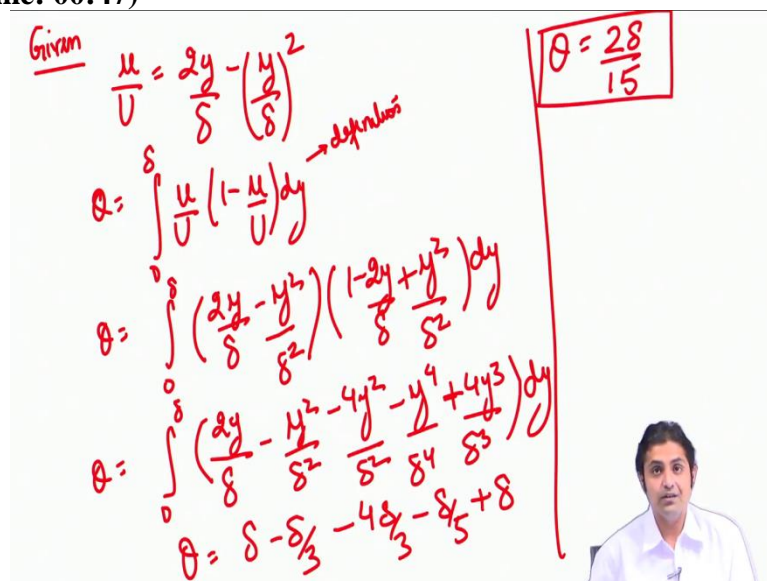 me: 00:47)
Given
u/U = 2y/δ - (y/δ)²
θ = ∫₀^δ u/U (1 - u/U) dy → definition
θ = ∫₀^δ (2y/δ - y²/δ²) (1 - 2y/δ + y²/δ²) dy
θ = ∫₀^δ (2y/δ - y²/δ² - 4y²/δ² - y⁴/δ⁴ + 4y³/δ³) dy
θ = δ - δ/3 - 4δ/3 - δ/5 + δ
θ = 2δ/15